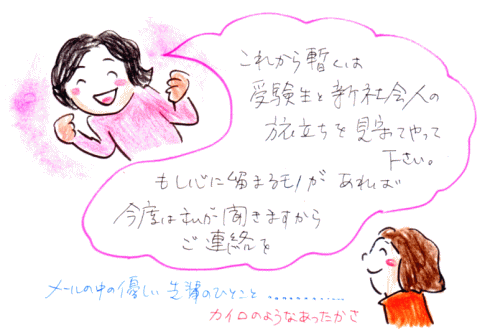 これから暫くは
受験生と新社会人の
旅立ちを見守ってやって
下さい。
もし心に留まるモノがあれば
今度は私が聞きますから
ご連絡を
メールの中の優しい先輩のひとこと……………
カイロのようなあったかさ